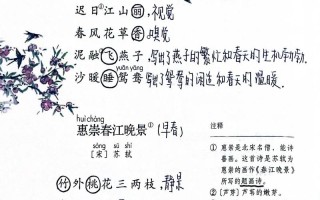 迟日①江山丽,视觉
春风花草香 嗅觉
泥融飞燕子,写出了燕子的繁忙和春天的生机勃勃.
yuān yāng
沙暖睡鸳鸯,写出了鸳鸯的闲适和春天的温暖.
huì chóng
惠崇春江晚景① (早春)
sòng sū shì
[宋] 苏轼
竹外桃花三两枝,静景
注释
① 惠崇是北宋名僧,能诗
善画。这首诗是苏轼为
惠崇的画作《春江晚景》
所写的题画诗。
② [芦芽] 芦苇的嫩芽。